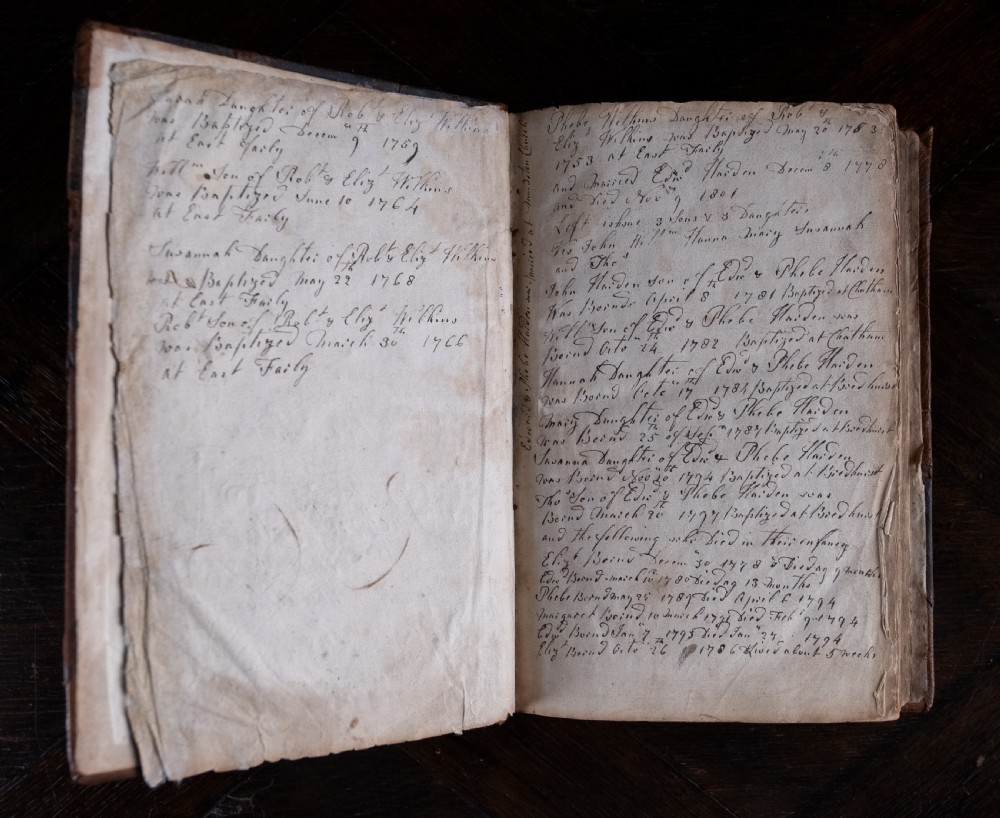 Daughter of Rob.t & Eliz.t Wilkins
was Baptized Decem.r 9th 1759
at East Farly
Will.m Son of Rob.t & Eliz.t Wilkins
was Baptized June 10 1764
at East Farly
Susannah Daughter of Rob.t & Eliz.t Wilkins
was Baptized May 22th 1768
at East Farly
Rob.t Son of Rob.t & Eliz.t Wilkins
was Baptized March 30th 1766
at East Farly
Edward & Phebe Harden was Married at Church
Phebe Wilkins Daughter of Rob.t &
Eliz.t Wilkins was Baptized May 20th 1753
1753 at East Farly
and Married Edw.d Harden Decem 8th 1778
and Died Nov 9 1801
Left 3 Sons & 3 Daughters
John Will.m Hanna Mary Susannah
and Tho.s
John Harden son of Edw.d & Phebe Harden
Was Bornd April 8th 1781 Baptized at Chatham
Will.m Son of Edw.d & Phebe Harden was
Bornd Octo.r 24th 1782 Baptized at Chatham
Hannah Daughter of Edw.d & Phebe Harden
was Bornd Octo 17th 1784 Baptized at Bredhurst
Mary Daughter of Edw.d & Phebe Harden
was Bornd 25th of Sep.r 1787 Baptized at Bredhurst
Susanna Daughter of Edw.d & Phebe Harden
was Bornd Nov 20 1794 Baptized at Bredhurst
Tho.s Son of Edw.d & Phebe Harden was
Bornd March 20th 1797 Baptized at Bredhurst
and the following who Died in their enfancy
Eliz.t Bornd Decem.r 30 1778 Died ag 9 months
Edw.d Bornd March 10 1780 Died ag 13 months
Phebe Bornd May 25 1789 Died April 6 1794
Margaret Bornd 10 March Died Feb 9 1794
Edw.d Bornd Jan.y 7 1795 Died Jan.y 27 1794
Eliz.t Bornd Octo.r 26th 1786 Lived about 5 weeks